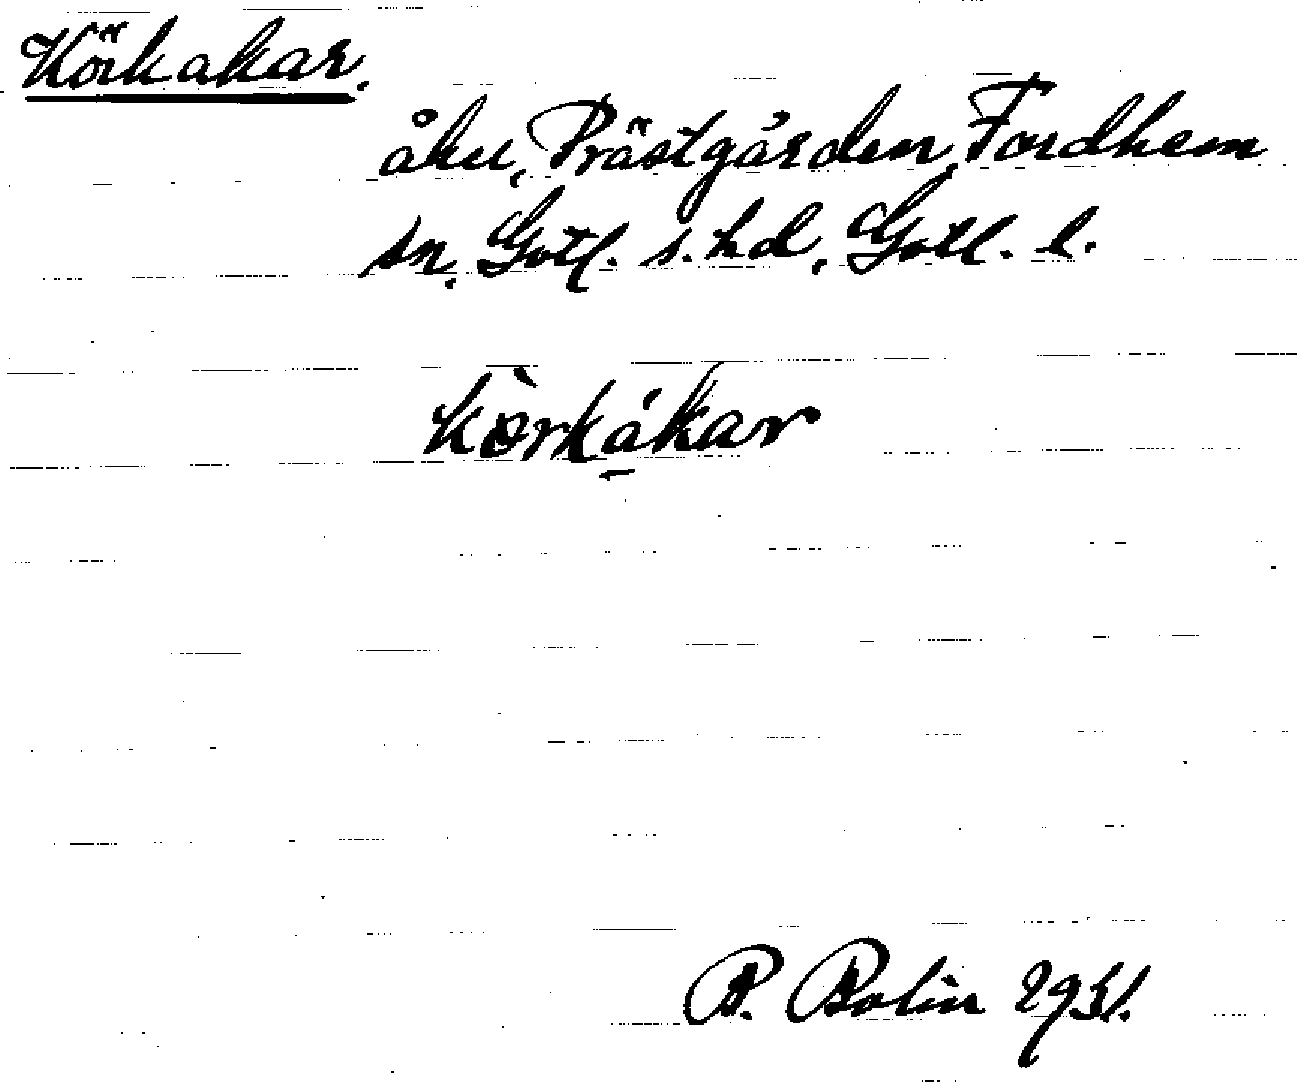 Körkakar.
åker, Prästgården, Fardhem
sn. Gotl. s. hd, Gotl. l.
körkákar
B. Bolin 1931.